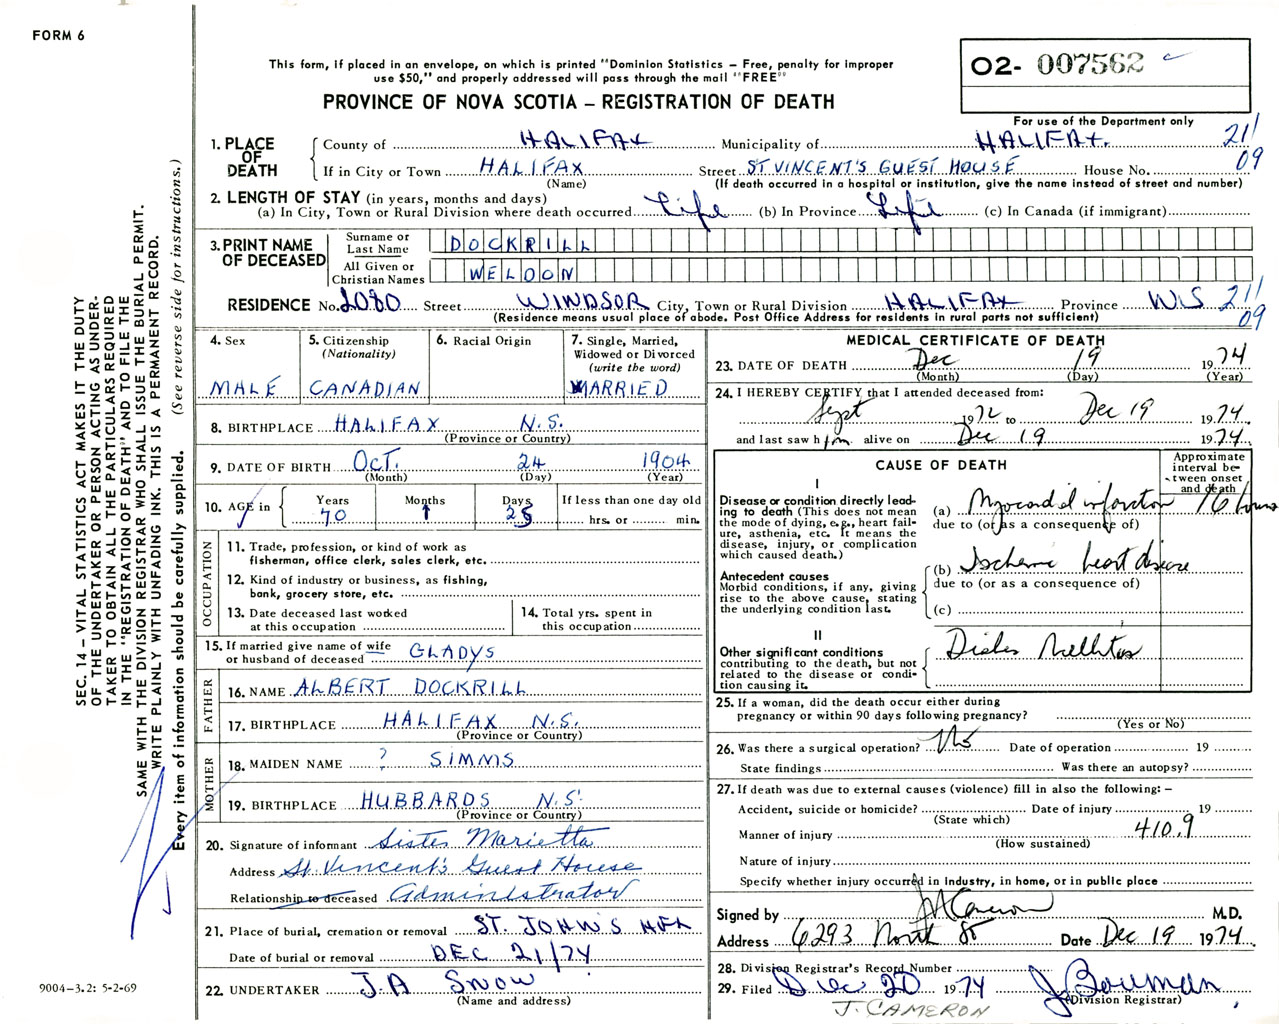 FORM 6
This form, if placed in an envelope, on which is printed "Dominion Statistics – Free, penalty for improper
use $50," and properly addressed will pass through the mail "FREE"
PROVINCE OF NOVA SCOTIA – REGISTRATION OF DEATH
O2- 007562
For use of the Department only
21/
09
1. PLACE OF DEATH
County of HALIFAX Municipality of HALIFAX.
If in City or Town HALIFAX Street ST VINCENT'S GUEST HOUSE House No.
(Name) (If death occurred in a hospital or institution, give the name instead of street and number)
2. LENGTH OF STAY (in years, months and days)
(a) In City, Town or Rural Division where death occurred Life (b) In Province Life (c) In Canada (if immigrant)
3. PRINT NAME OF DECEASED
Surname or Last Name DOCKRILL
All Given or Christian Names WELDON
RESIDENCE No. 2080 Street WINDSOR City, Town or Rural Division HALIFAX Province N.S 21/
(Residence means usual place of abode. Post Office Address for residents in rural parts not sufficient) 09
4. Sex
MALE
5. Citizenship
(Nationality)
CANADIAN
6. Racial Origin
7. Single, Married,
Widowed or Divorced
(write the word)
MARRIED
8. BIRTHPLACE HALIFAX N.S.
(Province or Country)
9. DATE OF BIRTH OCT. 24 1904
(Month) (Day) (Year)
10. AGE in
Years Months Days If less than one day old
70 1 25 hrs. or min.
OCCUPATION
11. Trade, profession, or kind of work as
fisherman, office clerk, sales clerk, etc.
12. Kind of industry or business, as fishing,
bank, grocery store, etc.
13. Date deceased last worked
at this occupation
14. Total yrs. spent in
this occupation
15. If married give name of wife
or husband of deceased GLADYS
FATHER
16. NAME ALBERT DOCKRILL
17. BIRTHPLACE HALIFAX N.S.
(Province or Country)
MOTHER
18. MAIDEN NAME ? SIMMS
19. BIRTHPLACE HUBBARDS N.S.
(Province or Country)
20. Signature of informant Sister Marietta
Address St. Vincent's Guest House
Relationship to deceased Administrator
21. Place of burial, cremation or removal ST. JOHN'S HFX
Date of burial or removal DEC 21/74
22. UNDERTAKER J.A SNOW
(Name and address)
MEDICAL CERTIFICATE OF DEATH
23. DATE OF DEATH Dec 19 1974
(Month) (Day) (Year)
24. I HEREBY CERTIFY that I attended deceased from:
Sept 1972 to Dec 19 1974
and last saw him alive on Dec 19 1974
CAUSE OF DEATH
Approximate
interval be-
tween onset
and death
I
Disease or condition directly lead-
ing to death (This does not mean
the mode of dying, e.g., heart fail-
ure, asthenia, etc. It means the
disease, injury, or complication
which caused death.)
(a) Myocardial infarction 16 hours
due to (or as a consequence of)
Antecedent causes
Morbid conditions, if any, giving
rise to the above cause, stating
the underlying condition last.
(b) Ischemic heart disease
due to (or as a consequence of)
(c)
II
Other significant conditions
contributing to the death, but not
related to the disease or condi-
tion causing it.
Diabetes Mellitus
25. If a woman, did the death occur either during
pregnancy or within 90 days following pregnancy?
(Yes or No)
26. Was there a surgical operation? No Date of operation 19
State findings Was there an autopsy?
27. If death was due to external causes (violence) fill in also the following: –
Accident, suicide or homicide? Date of injury 19
(State which)
Manner of injury 410.9
(How sustained)
Nature of injury
Specify whether injury occurred in Industry, in home, or in public place
Signed by J M Cameron M.D.
Address 6293 North St Date Dec 19 1974
28. Division Registrar's Record Number
29. Filed Dec 20 1974 J Bowman
(Division Registrar)
J. CAMERON
SEC. 14 – VITAL STATISTICS ACT MAKES IT THE DUTY
OF THE UNDERTAKER OR PERSON ACTING AS UNDER-
TAKER TO OBTAIN ALL THE PARTICULARS REQUIRED
IN THE "REGISTRATION OF DEATH" AND TO FILE THE
SAME WITH THE DIVISION REGISTRAR WHO SHALL ISSUE THE BURIAL PERMIT.
WRITE PLAINLY WITH UNFADING INK. THIS IS A PERMANENT RECORD.
Every item of information should be carefully supplied. (See reverse side for instructions.)
9004-3.2: 5-2-69